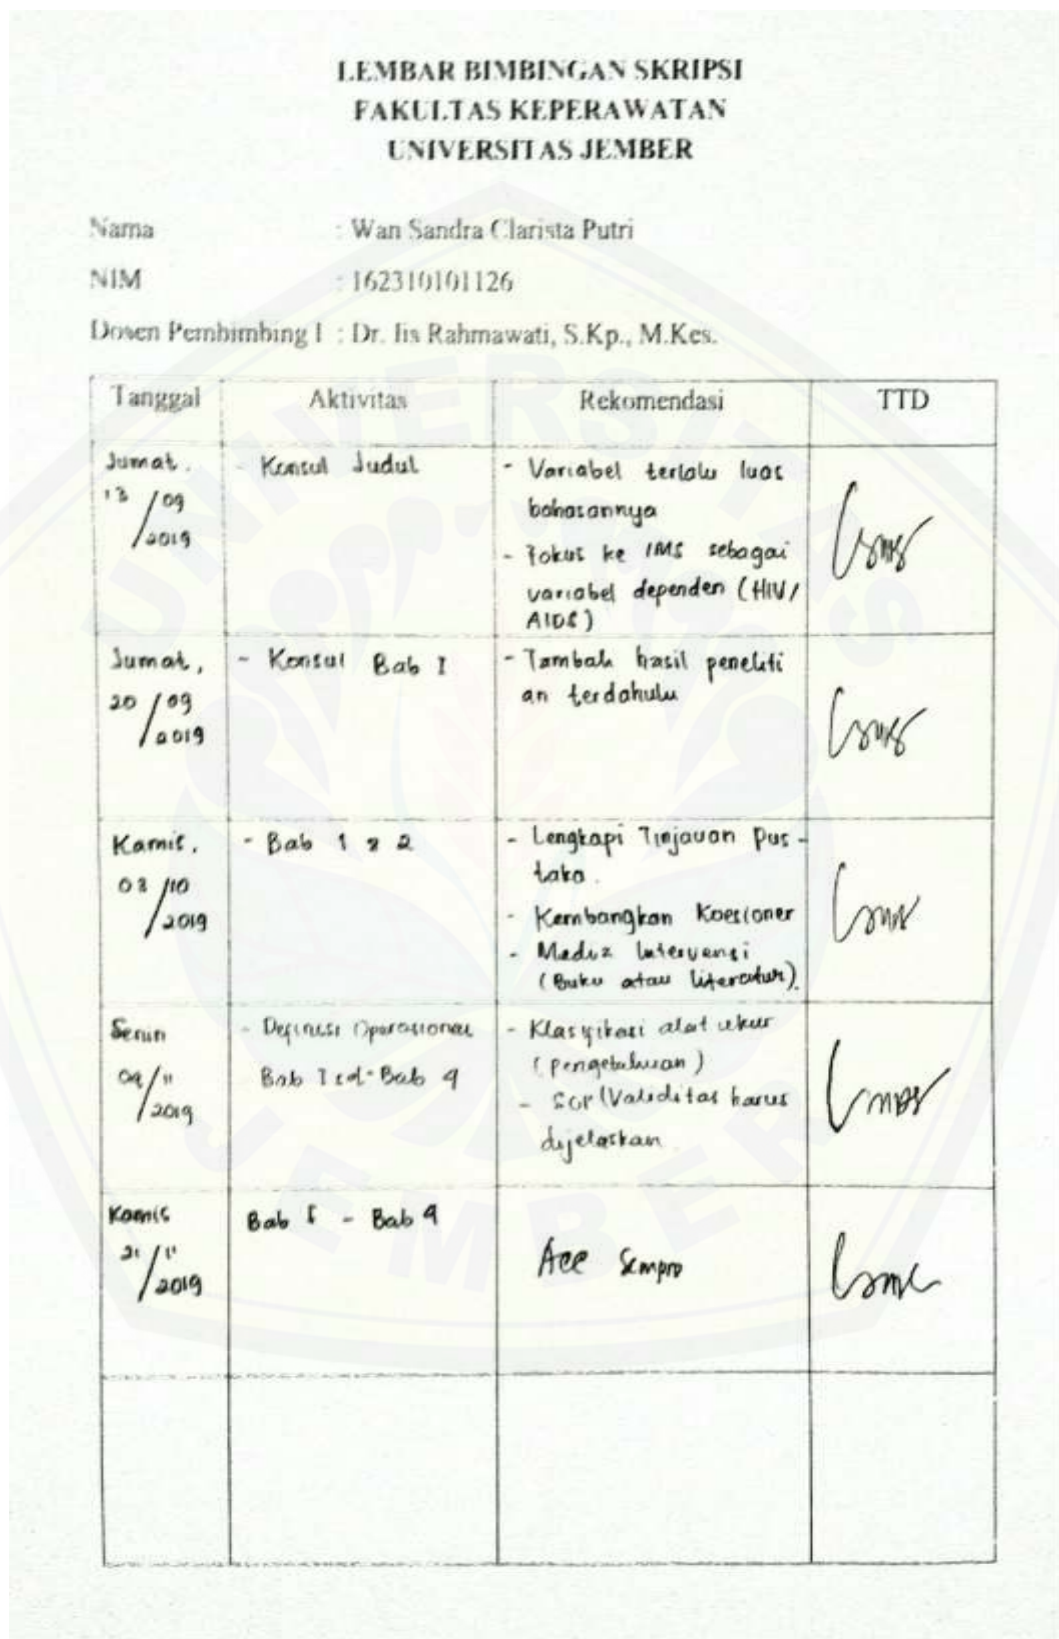 LEMBAR BIMBINGAN SKRIPSI
FAKULTAS KEPERAWATAN
UNIVERSITAS JEMBER
Nama : Wan Sandra Clarista Putri
NIM : 162310101126
Dosen Pembimbing I : Dr. Iis Rahmawati, S.Kp., M.Kes.
Tanggal Aktivitas Rekomendasi TTD
Jumat. 13/09/2019
- Konsul Judul
- Variabel terlalu luas
bahasannya
- Fokus ke IMS sebagai
variabel dependen (HIV/
AIDS)
Jumat, 20/09/2019
- Konsul Bab I
- Tambah hasil peneliti
an terdahulu
Kamis, 03/10/2019
- Bab 1 & 2
- Lengkapi Tinjauan Pus-
taka.
- Kembangkan Koesioner
- Media Intervensi
(Buku atau literatur).
Senin /11/2019
- Definisi Operasional
Bab I sd - Bab 4
- Klasifikasi alat ukur
(pengetahuan)
- SOP (Validitas harus
dijelaskan
Kamis 21/11/2019
Bab I - Bab 4
Acc Sempro
UNIVERSITAS
JEMBER